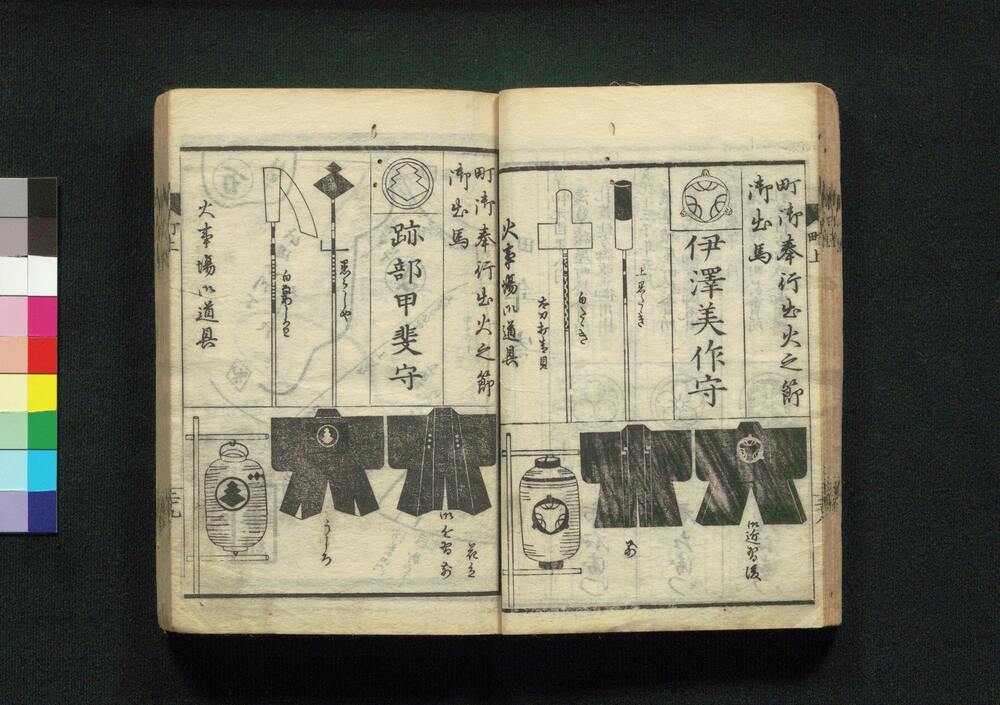 町御奉行出火之節
御出馬
伊澤美作守
上黒らしき
白たゝき
太刀打青貝
火事場御道具
御近習後
前
町御奉行出火之節
御出馬
跡部甲斐守
黒らしや
火事場御道具
御近習前
うしろ
町上